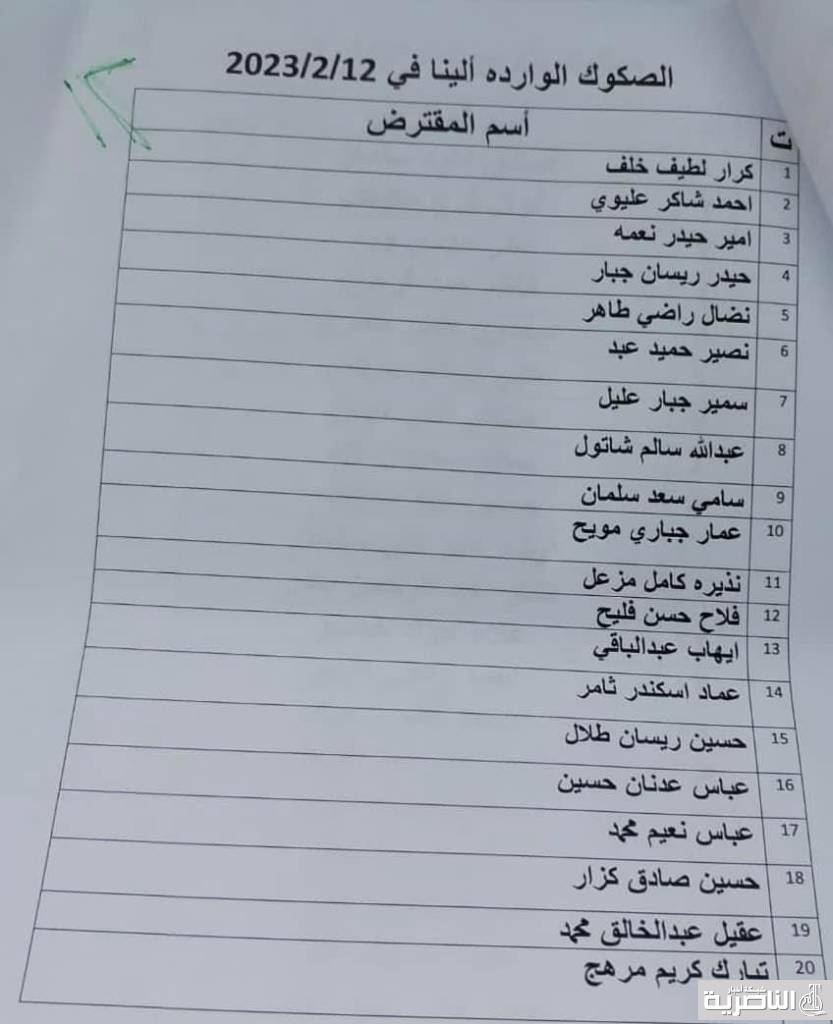 الصكوك الوارده ألينا في 2023/2/12
ت أسم المقترض
1 كرار لطيف خلف
2 احمد شاكر عليوي
3 امير حيدر نعمه
4 حيدر ريسان جبار
5 نضال راضي طاهر
6 نصير حميد عبد
7 سمير جبار عليل
8 عبدالله سالم شاتول
9 سامي سعد سلمان
10 عمار جباري مويح
11 نذيره كامل مزعل
12 فلاح حسن فليح
13 ايهاب عبدالباقي
14 عماد اسكندر ثامر
15 حسين ريسان طلال
16 عباس عدنان حسين
17 عباس نعيم محمد
18 حسين صادق كزار
19 عقيل عبدالخالق محمد
20 تبارك كريم مرهج
شبكة أخبار
الناصرية